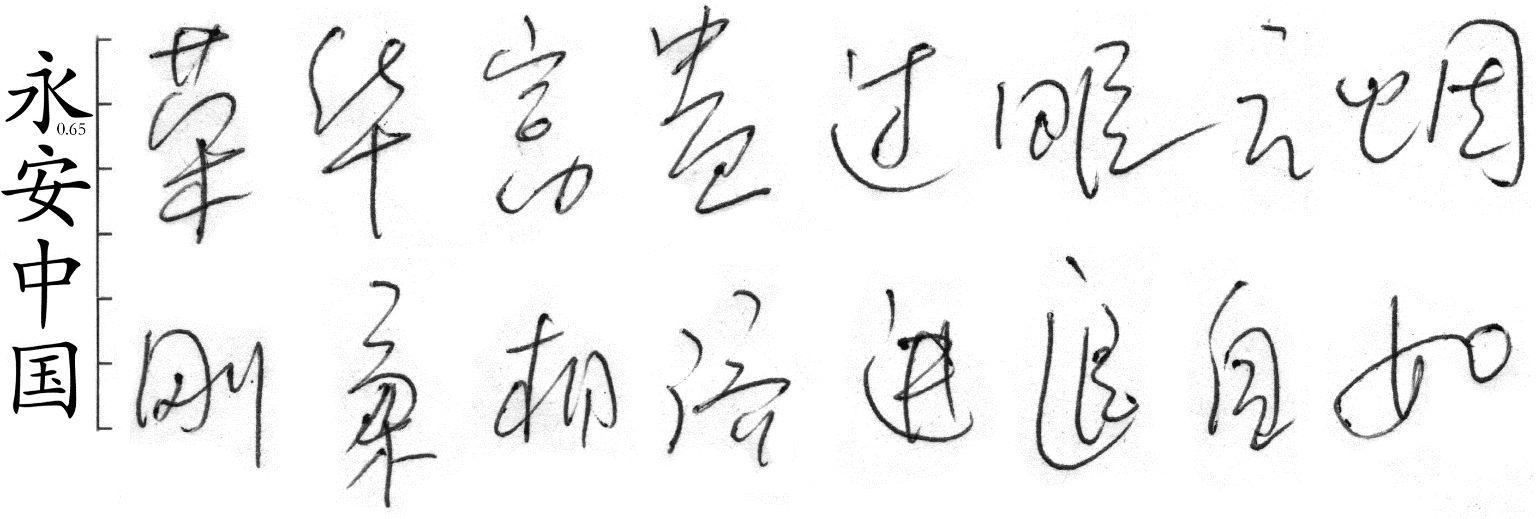 永安中国
0.65
荣华富贵过眼云烟
刚柔相济进退自如